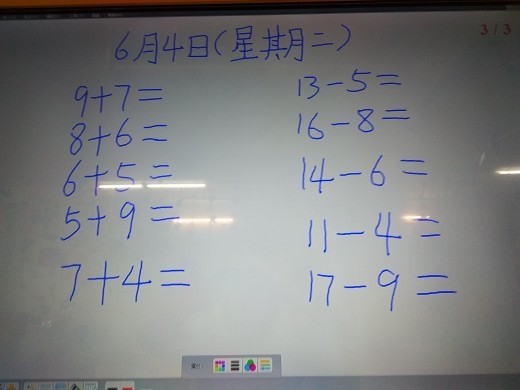 3/3
6月4日(星期二)
9+7=
8+6=
6+5=
5+9=
7+4=
13-5=
16-8=
14-6=
11-4=
17-9=